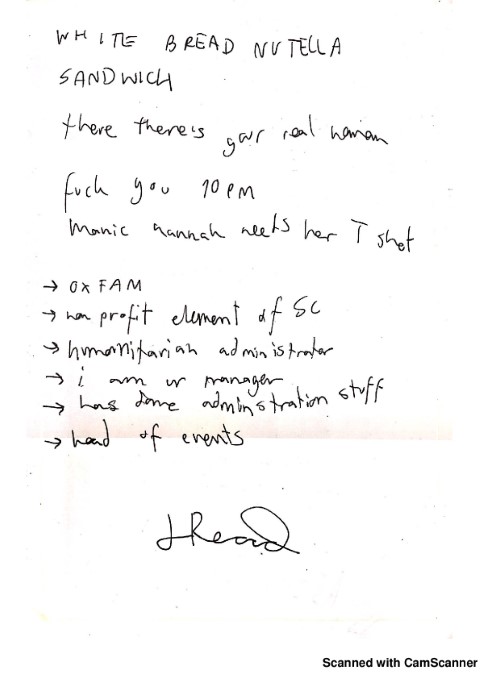 WHITE BREAD NUTELLA
SANDWICH
there there's your real haman
fuck you 10 PM
manic hannah needs her T shot
→ OXFAM
→ non profit element of SC
→ humanitarian administrator
→ i am ur manager
→ has done administration stuff
→ head of events
JRead
Scanned with CamScanner